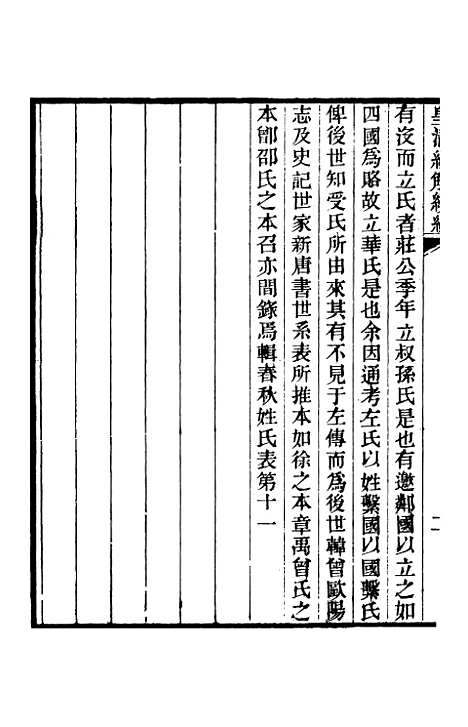 皇清經解續編
二
有沒而立氏者莊公季年立叔孫氏是也有邀鄰國以立之如
四國為賂故立華氏是也余因通考左氏以姓繫國以國繫氏
俾後世知受氏所由來其有不見于左傳而為後世韓曾歐陽
志及史記世家新唐書世系表所推本如徐之本章禹曾氏之
本鄫邵氏之本召亦間錄焉輯春秋姓氏表第十一